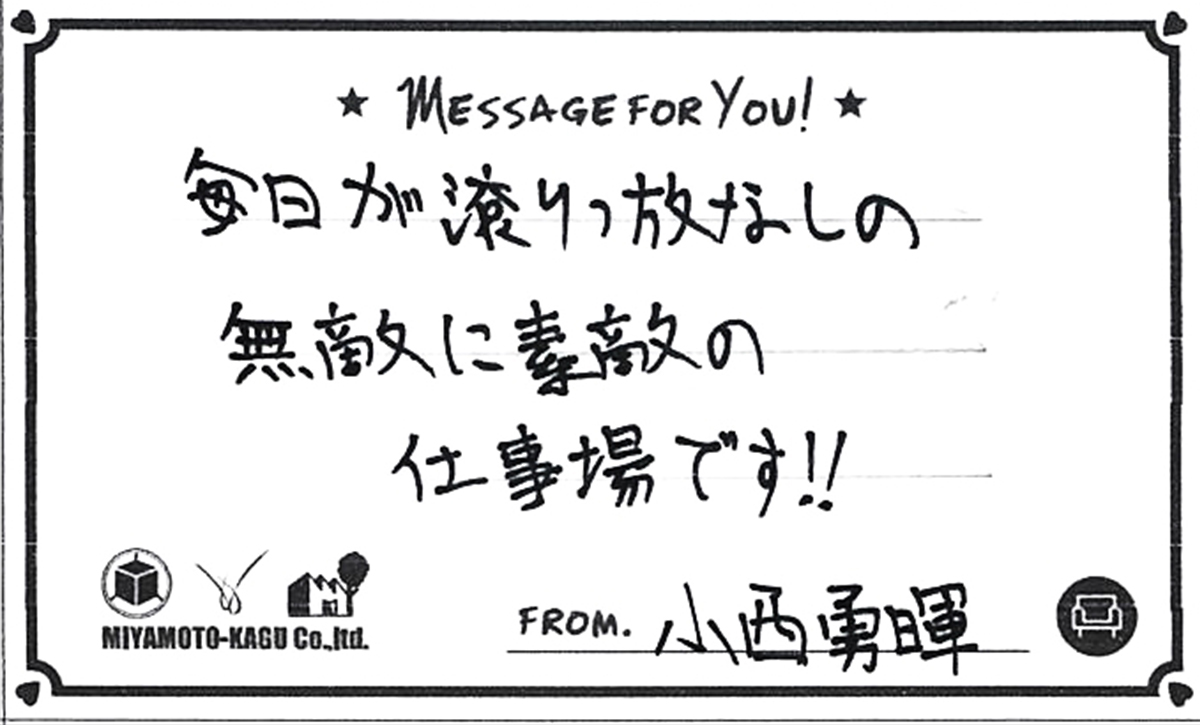 ★ MESSAGE FOR YOU! ★
毎日が滾りっ放なしの
無敵に素敵の
仕事場です!!
MIYAMOTO-KAGU Co.,ltd.
FROM. 小西勇暉